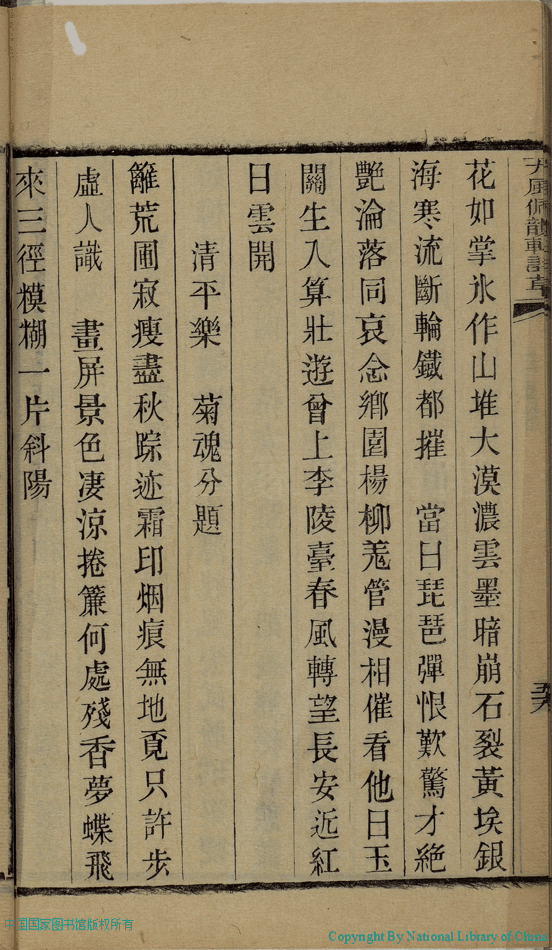 花如掌氷作山堆大漠濃雲墨暗崩石裂黃埃銀
海寒流斷輪鐵都摧　當日琵琶彈恨歎驚才絕
艷淪落同哀念鄉園楊柳羗管漫相催看他日玉
關生入算壯遊曾上李陵臺春風轉望長安近紅
日雲開
清平樂　菊魂分題
籬荒圃寂瘦盡秋踪迹霜印烟痕無地覓只許步
虛人識　畫屏景色凄涼捲簾何處殘香夢蝶飛
來三徑糢糊一片斜陽
中国国家图书馆版权所有
Copyright By National Library of China